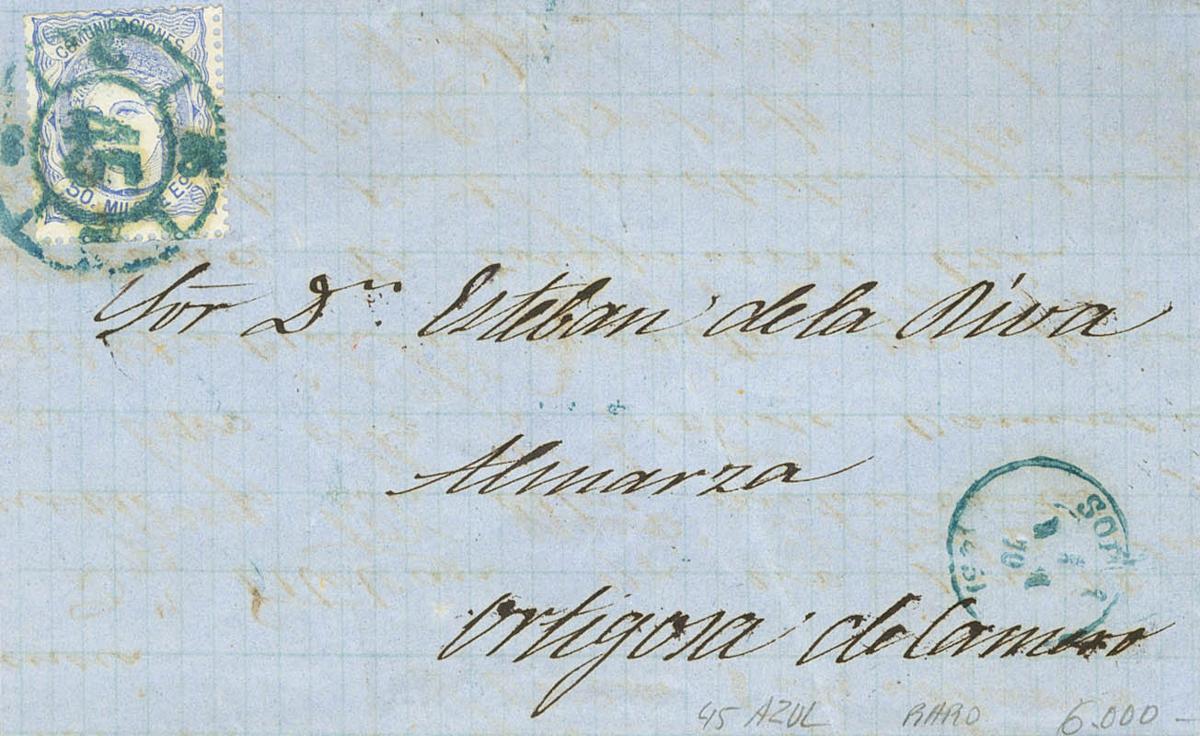 COMUNICACIONES
50. MIL
Sor Dn. Esteban de la Riva
Almarza
Ortigosa de Camero
45 AZUL RARO 6.000 -